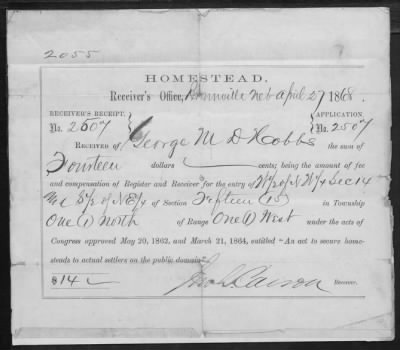 2055
HOMESTEAD.
Receiver's Office, Brownville Neb April 27 1868.
RECEIVER'S RECEIPT, APPLICATION
No. 2507 No. 2507
RECEIVED OF George M D Hobbs the sum of
Fourteen dollars cents; being the amount of fee
and compensation of Register and Receiver for the entry of W 1/2 of N W 1/4 Sec 14
S 1/2 of N E 1/4 of Section Fifteen (15) in Township
One (1) North of Range One (1) West under the acts of
Congress approved May 20, 1862, and March 21, 1864, entitled "An act to secure home-
steads to actual settlers on the public domain."
$ 14 Jno L Carson Receiver.